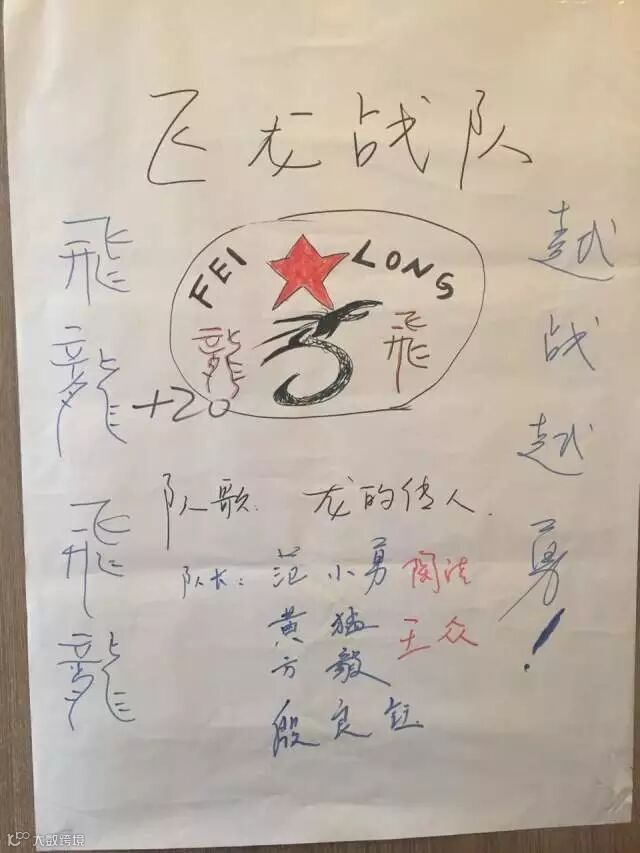 飞龙战队
飛龍飛龍
FEI LONG
龍 飛
+20
越战越勇!
队歌. 龙的传人.
队长: 范小勇 陶法
黄猛 王众
方毅
殷良钰
大数跨境